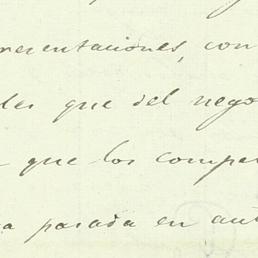 presentaciones, con
les que del nego
que los compa
a pasada en aut